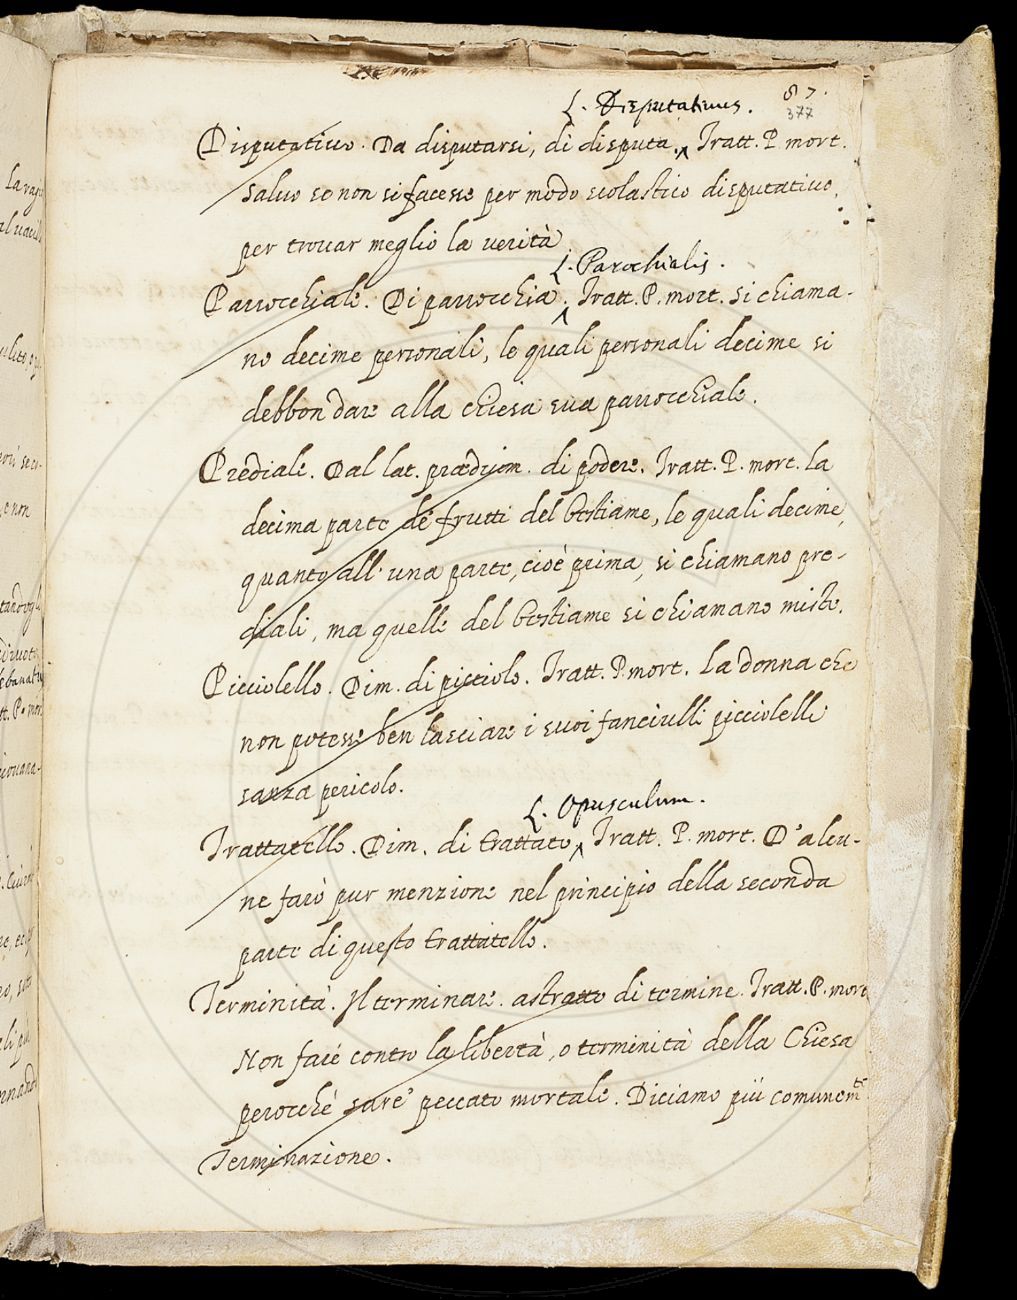 87.
377
L. Disputativus.
Disputativo. Da disputarsi, di disputa. Tratt. P. mort.
salvo se non si facesse per modo scolastico disputativo,
per trovar meglio la verità
L. Parochialis.
Parrocchiale. Di parrocchia. Tratt. P. mort. Si chiama-
no decime personali, le quali personali decime si
debbon dare alla chiesa sua parrocchiale.
Prediale. Dal lat. prædium. di podere. Tratt. P. mort. La
decima parte de' frutti del bestiame, le quali decime,
quanto all' una parte, cioè prima, si chiamano pre-
diali, ma quelle del bestiame si chiamano miste.
Picciolello. Dim. di picciolo. Tratt. P. mort. La donna che
non potesse ben lasciare i suoi fanciulli picciolelli
sanza pericolo.
L. Opusculum.
Trattatello. Dim. di trattato. Tratt. P. mort. D'alcu-
ne farò pur menzione nel principio della seconda
parte di questo trattatello.
Terminità. Il terminare. astratto di termine. Tratt. P. mort
Non faré contro la libertà, o terminità della Chiesa
perocché saré peccato mortale. Diciamo più comunemte
Terminazione.